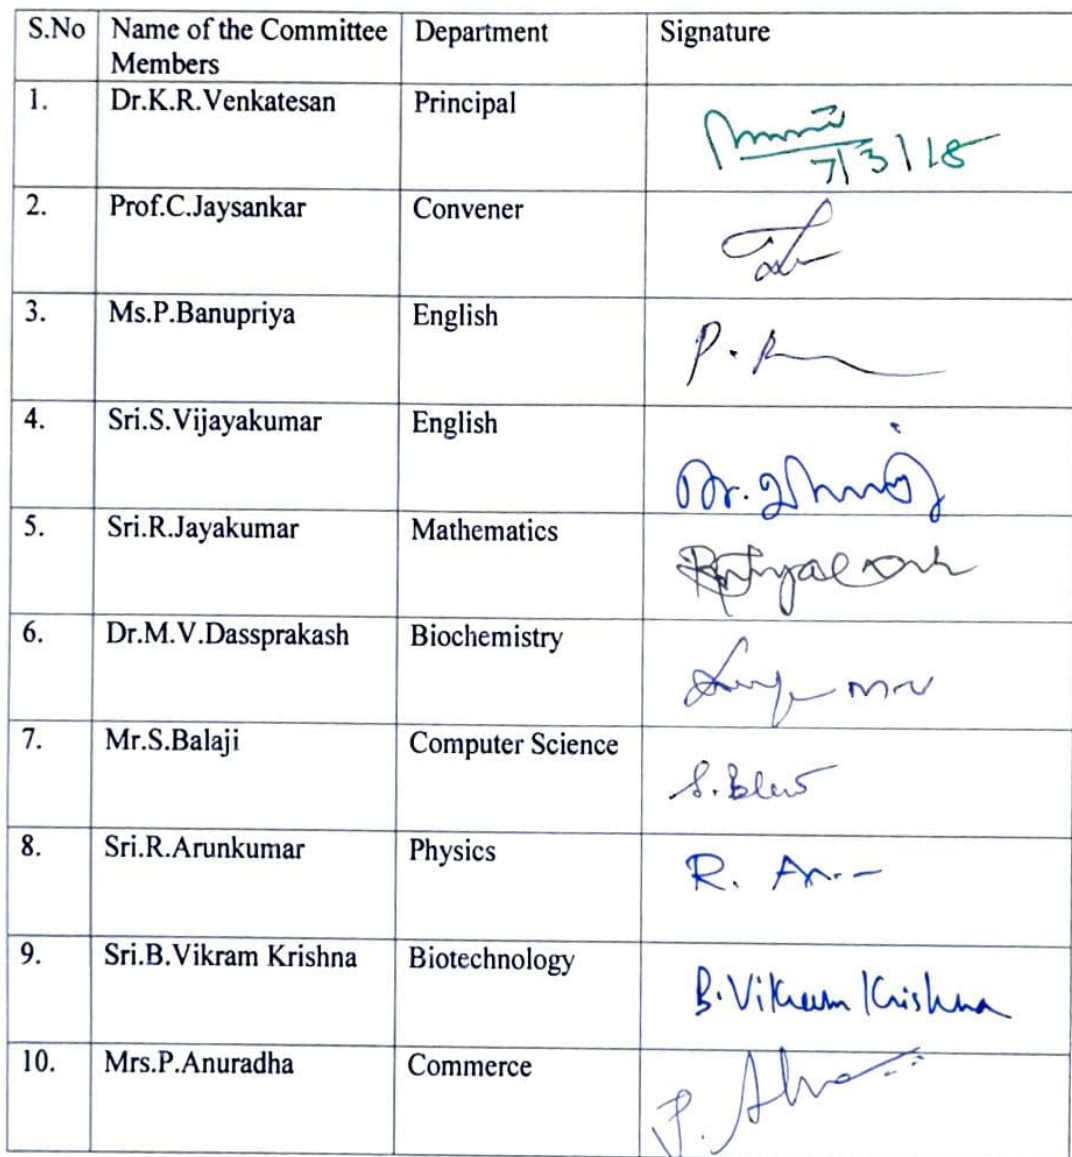 S.No Name of the Committee Members Department Signature
1. Dr.K.R.Venkatesan Principal
7/3/18
2. Prof.C.Jaysankar Convener
3. Ms.P.Banupriya English
P.
4. Sri.S.Vijayakumar English
5. Sri.R.Jayakumar Mathematics
6. Dr.M.V.Dassprakash Biochemistry
7. Mr.S.Balaji Computer Science
S.
8. Sri.R.Arunkumar Physics
R.
9. Sri.B.Vikram Krishna Biotechnology
B.Vikram Krishna
10. Mrs.P.Anuradha Commerce
P.